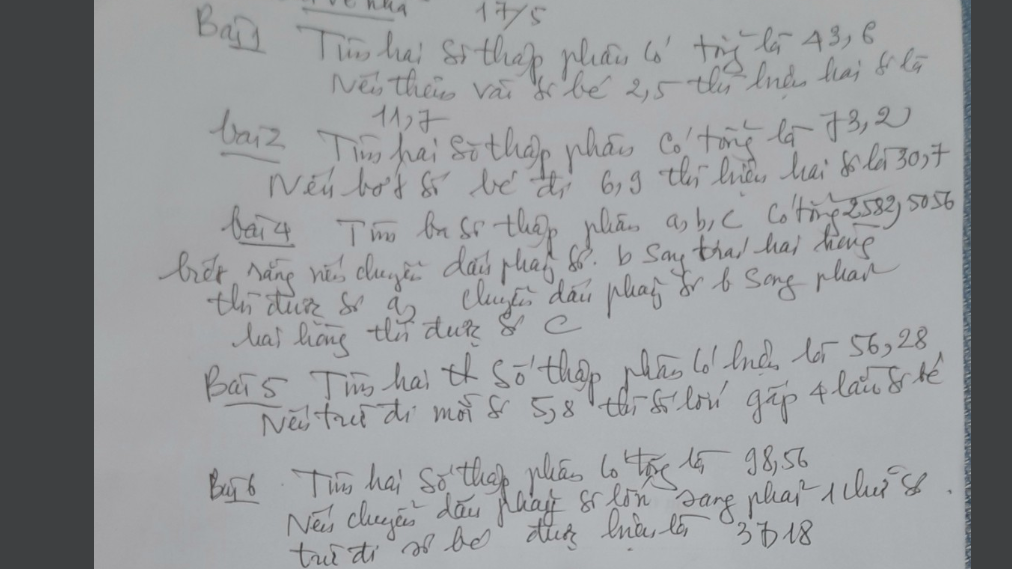 về nhà 17/5
Bài 1 Tìm hai số thập phân có tổng là 43,6
Nếu thêm vào số bé 2,5 thì hiệu hai số là
11,7
bài 2 Tìm hai số thập phân có tổng là 73,2
Nếu bớt số bé đi 6,9 thì hiệu hai số là 30,7
bài 4 Tìm ba số thập phân a, b, c có tổng 2582,5056
biết rằng nếu chuyển dấu phẩy số b sang trái hai hàng
thì được số a, chuyển dấu phẩy số b sang phải
hai hàng thì được số c
Bài 5 Tìm hai số thập phân có hiệu là 56,28
Nếu trừ đi mỗi số 5,8 thì số lớn gấp 4 lần số bé
Bài 6 Tìm hai số thập phân có tổng là 98,56
Nếu chuyển dấu phẩy số lớn sang phải 1 chữ số
trừ đi số bé được hiệu là